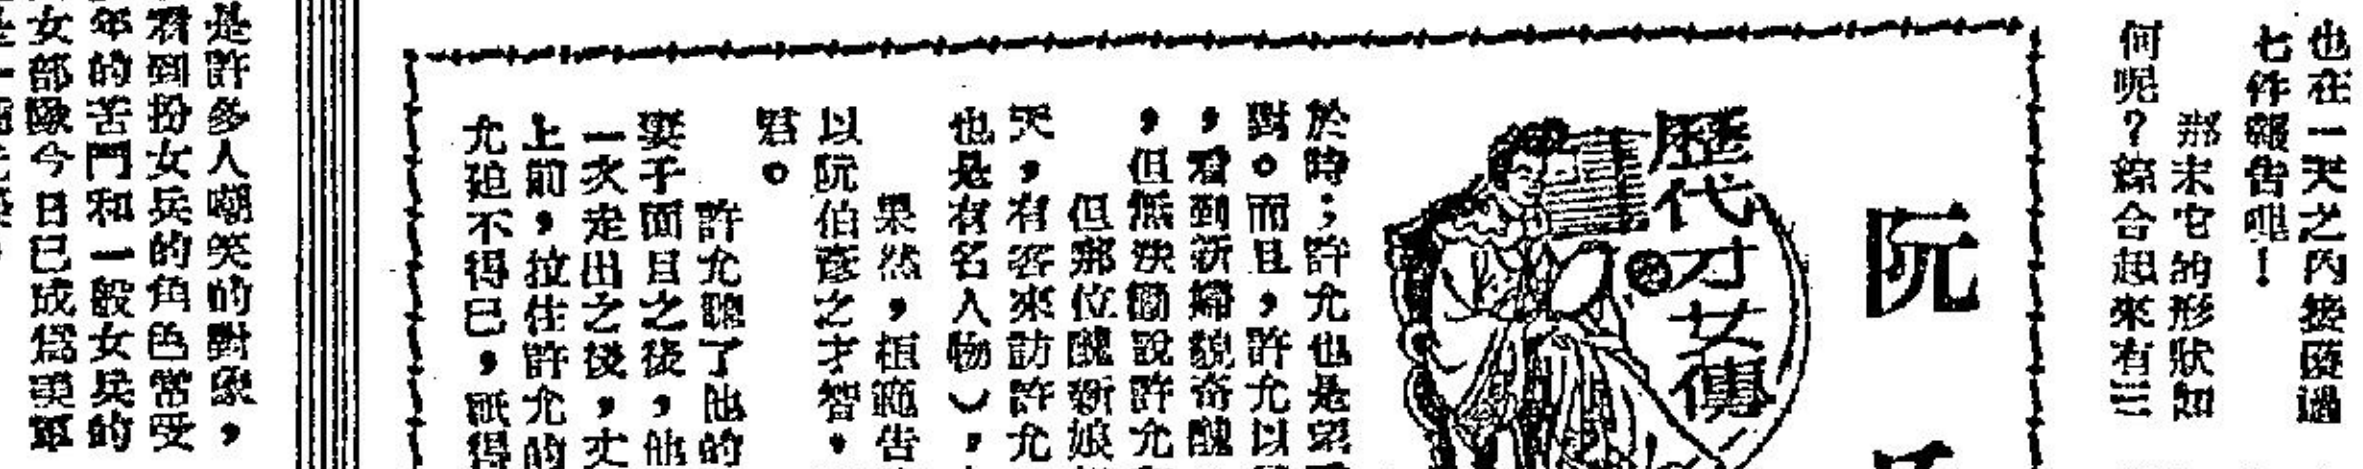 也在一天之內接獲過
七件報告哩！
那末它的形狀如
何呢？綜合起來有三
阮
歷代才女傳
於時；許允也是
對。而且，許允以
，看到新婦貌奇醜
，但無法勸說許允
但那位醜新娘
天，有客來訪許允
也是有名人物），
果然，桓範告
以阮伯彥之才智，
君。
許允聽了他的
妻子面目之後，他
一次走出之後，丈
上前，拉住許允的
允迫不得已，祇得
是許多人嘲笑的對象，
看到扮女兵的角色常受
年的苦鬥和一般女兵的
女部隊今日已成爲軍